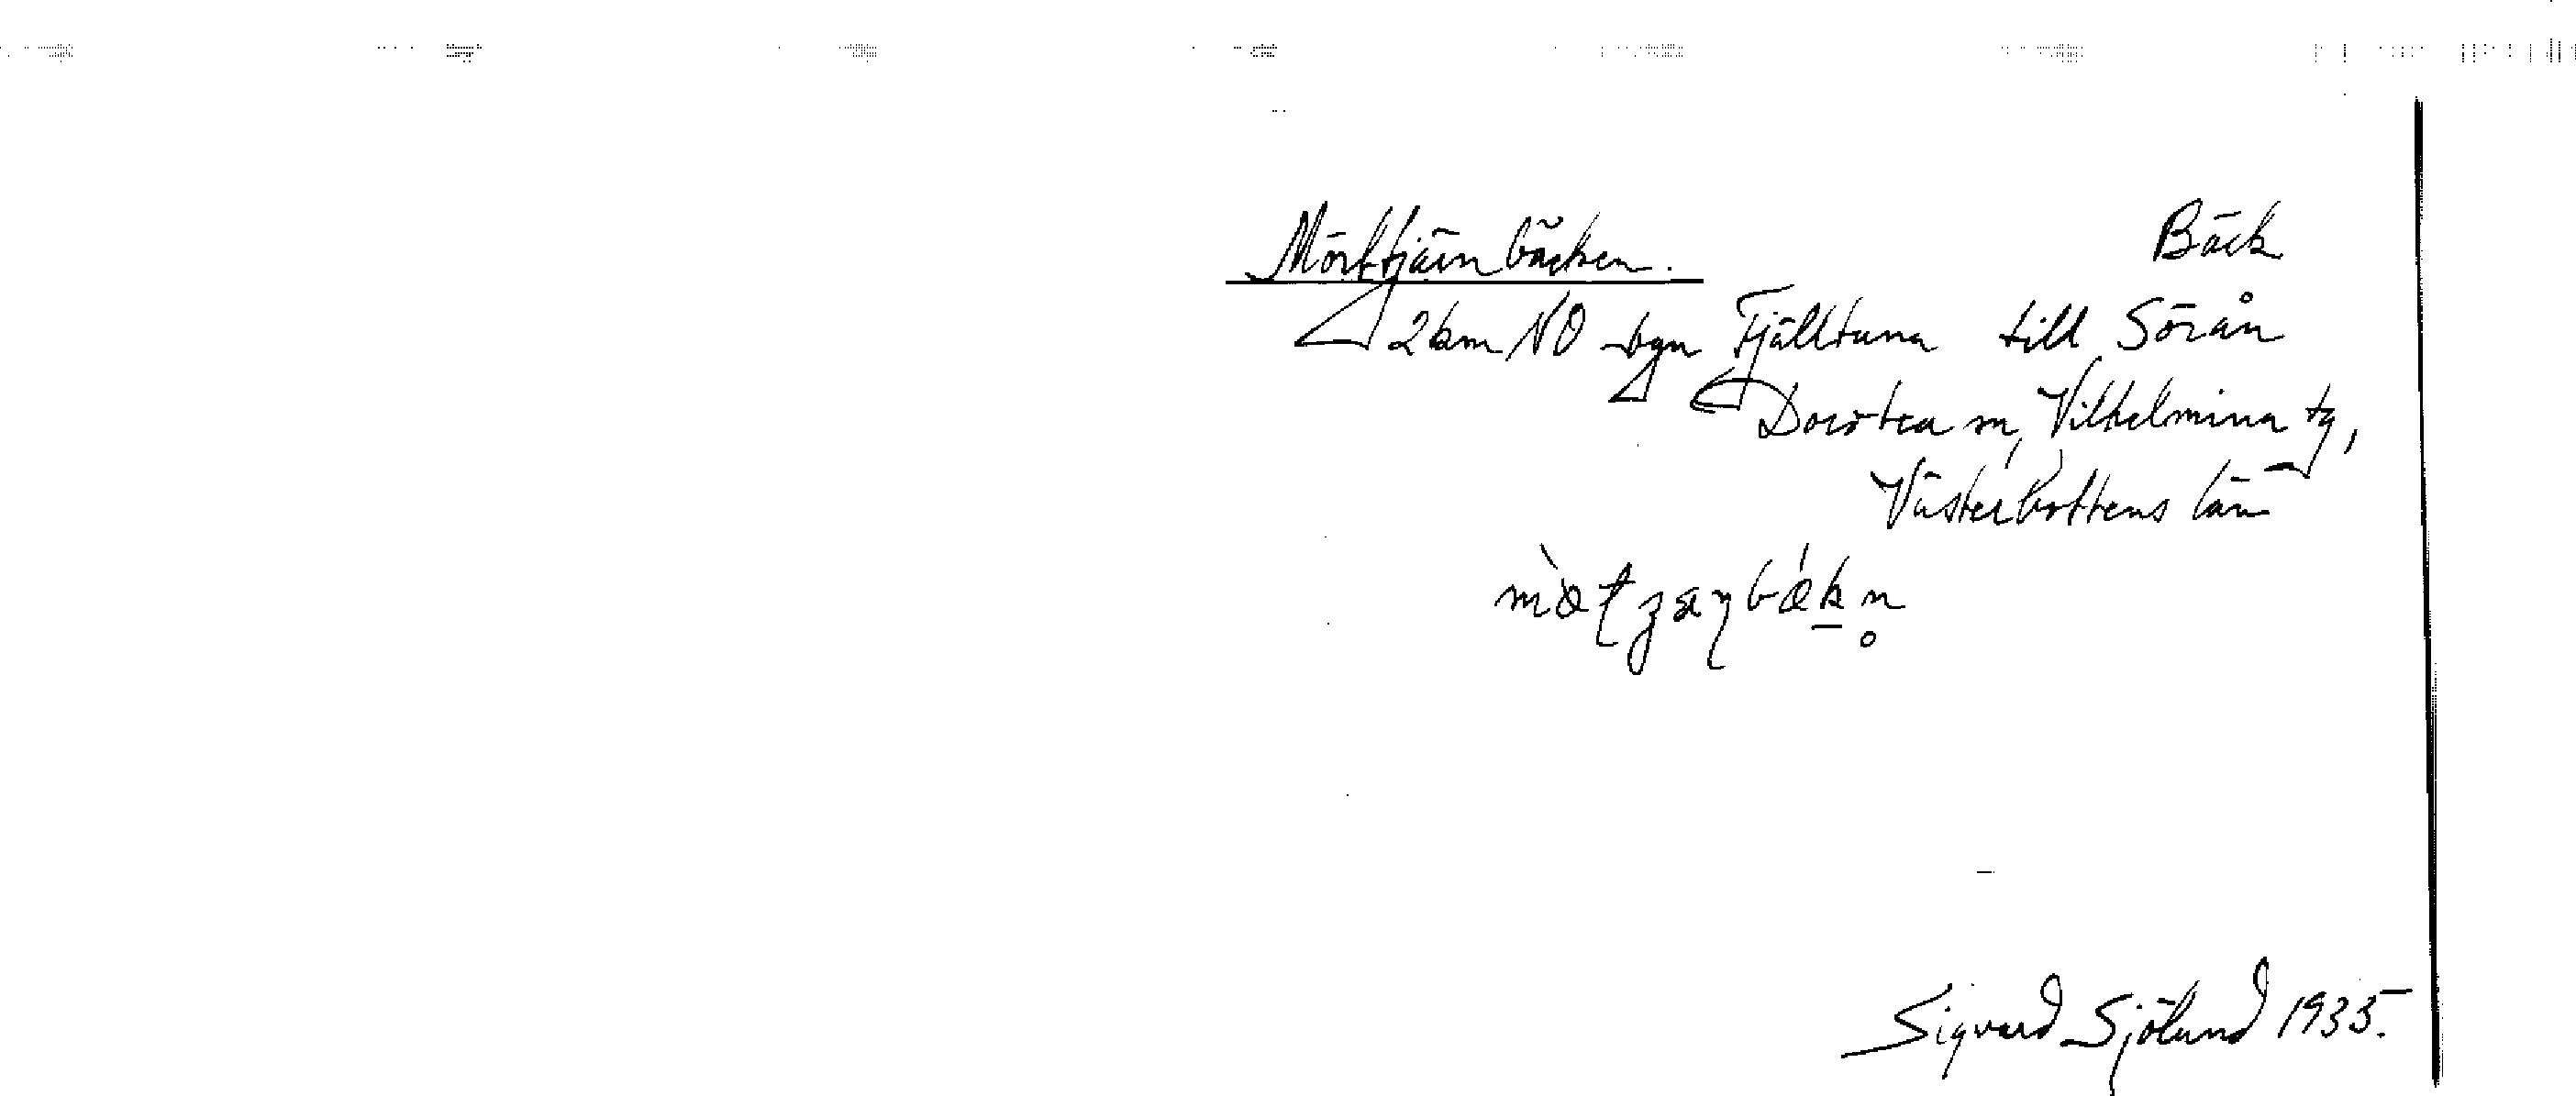 Mörktjärnbäcken. Bäck
2 km NO byn Fjälltuna till Sörån
Dorotea sn, Vilhelmina tg,
Västerbottens län
Sigvard Sjölund 1935.